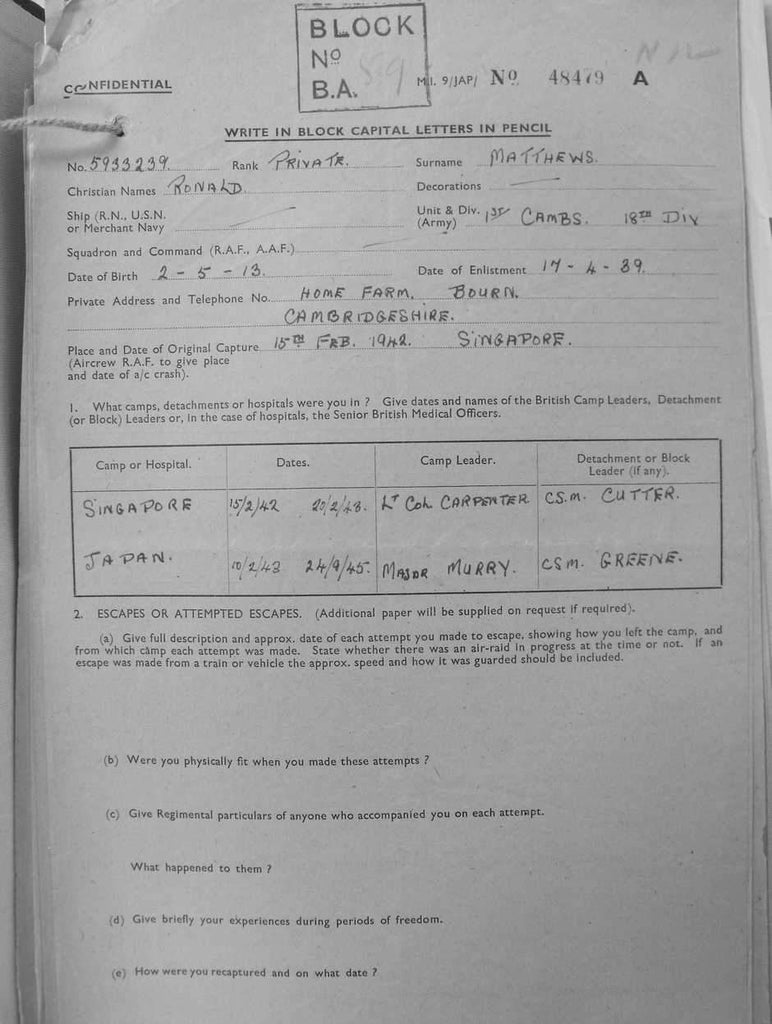 BLOCK
Nº
B.A.
CONFIDENTIAL
M.I. 9/JAP/ Nº 48479 A
WRITE IN BLOCK CAPITAL LETTERS IN PENCIL
No. 5933239. Rank PRIVATE. Surname MATTHEWS.
Christian Names RONALD. Decorations
Ship (R.N., U.S.N. or Merchant Navy
Unit & Div. (Army) 1ST CAMBS. 18TH DIV
Squadron and Command (R.A.F., A.A.F.)
Date of Birth 2 - 5 - 13. Date of Enlistment 17 - 4 - 39.
Private Address and Telephone No. HOME FARM. BOURN.
CAMBRIDGESHIRE.
Place and Date of Original Capture 15TH FEB. 1942. SINGAPORE.
(Aircrew R.A.F. to give place
and date of a/c crash).
1. What camps, detachments or hospitals were you in ? Give dates and names of the British Camp Leaders, Detachment
(or Block) Leaders or, in the case of hospitals, the Senior British Medical Officers.
Camp or Hospital. Dates. Camp Leader. Detachment or Block Leader (if any).
SINGAPORE 15/2/42 20/2/43. LT COL. CARPENTER CS.M. CUTTER.
JAPAN. 10/2/43 24/9/45. MAJOR MURRY. CSM. GREENE.
2. ESCAPES OR ATTEMPTED ESCAPES. (Additional paper will be supplied on request if required).
(a) Give full description and approx. date of each attempt you made to escape, showing how you left the camp, and
from which camp each attempt was made. State whether there was an air-raid in progress at the time or not. If an
escape was made from a train or vehicle the approx. speed and how it was guarded should be included.
(b) Were you physically fit when you made these attempts ?
(c) Give Regimental particulars of anyone who accompanied you on each attempt.
What happened to them ?
(d) Give briefly your experiences during periods of freedom.
(e) How were you recaptured and on what date ?